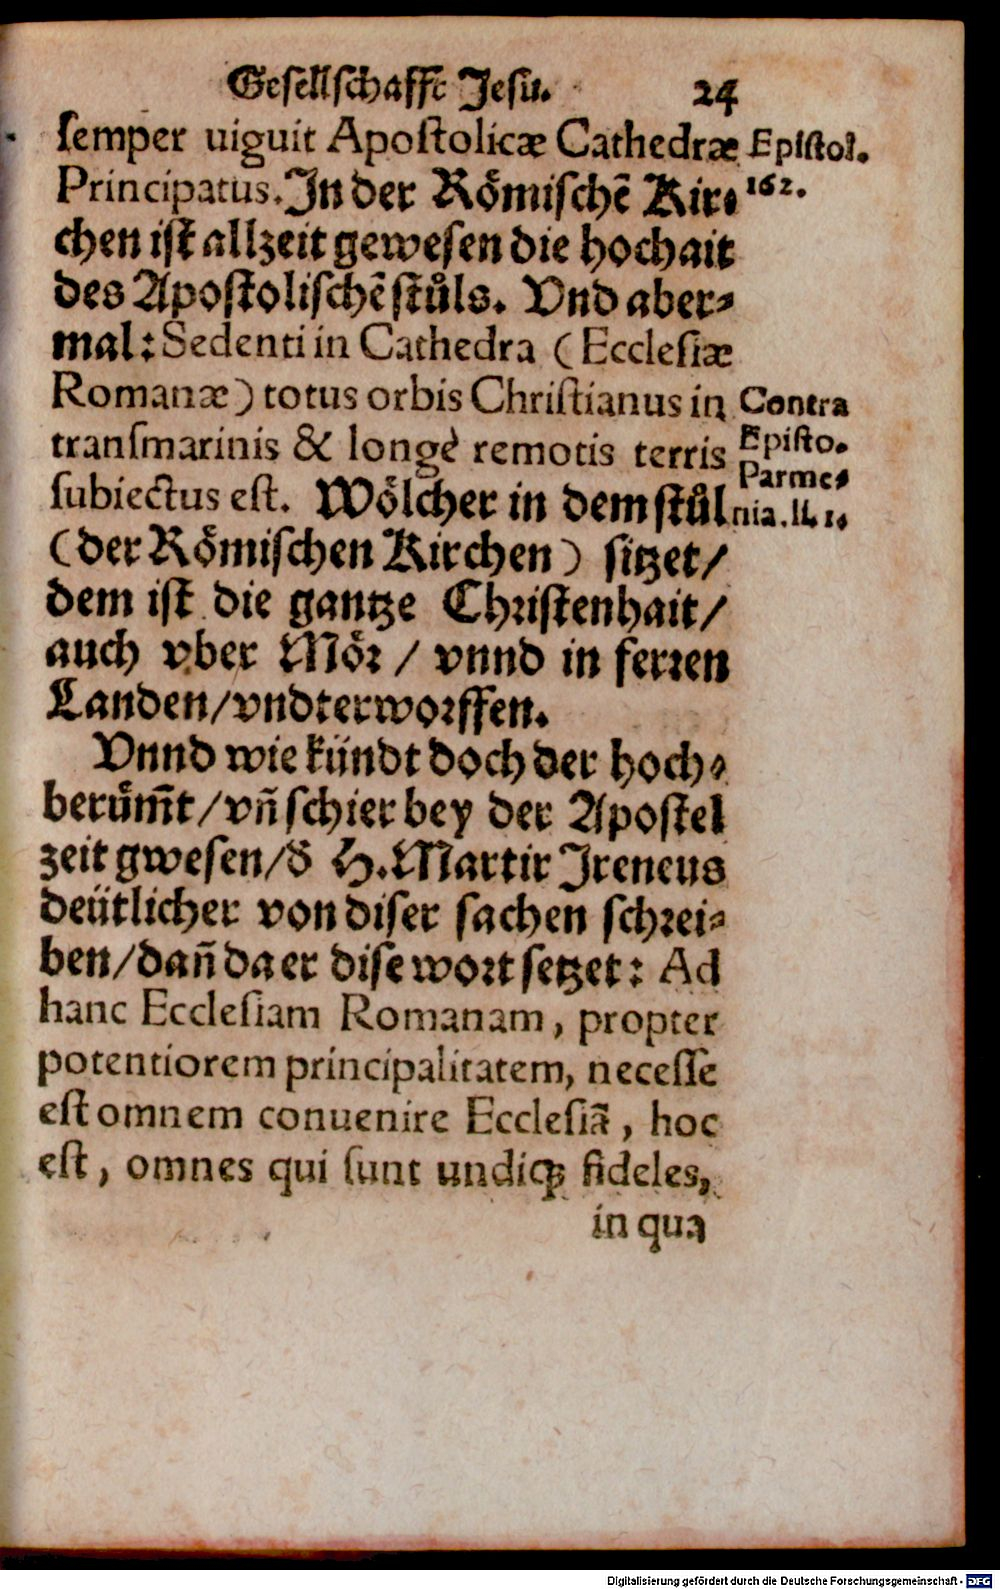 Geſellſchafft Jeſu. 24
ſemper uiguit Apoſtolicæ Cathedræ
Principatus. In der Römiſchẽ Kir⸗
chen iſt allzeit geweſen die hochait
des Apoſtoliſchẽ ſtůls. Vnd aber⸗
mal: Sedenti in Cathedra (Eccleſiæ
Romanæ) totus orbis Chriſtianus in
tranſmarinis & longè remotis terris
ſubiectus eſt. Wölcher in dem ſtůl
(der Römiſchen Kirchen) ſitzet/
dem iſt die gantze Chꝛiſtenhait/
auch vber Möꝛ / vnnd in ferꝛen
Landen/vndterwoꝛffen.
Vnnd wie kündt doch der hoch⸗
berům̃t/vñ ſchier bey der Apoſtel
zeit gweſen/d̕ H. Martir Ireneus
deütlicher von diſer ſachen ſchꝛei⸗
ben/dañ da er diſe woꝛt ſetzet: Ad
hanc Eccleſiam Romanam, propter
potentiorem principalitatem, neceſſe
eſt omnem conuenire Eccleſiã, hoc
eſt, omnes qui ſunt undiqꝫ fideles,
in qua
Epiſtol.
162.
Contra
Epiſto.
Parme⸗
nia. li. 1.
Digitalisierung gefördert durch die Deutsche Forschungsgemeinschaft - DFG